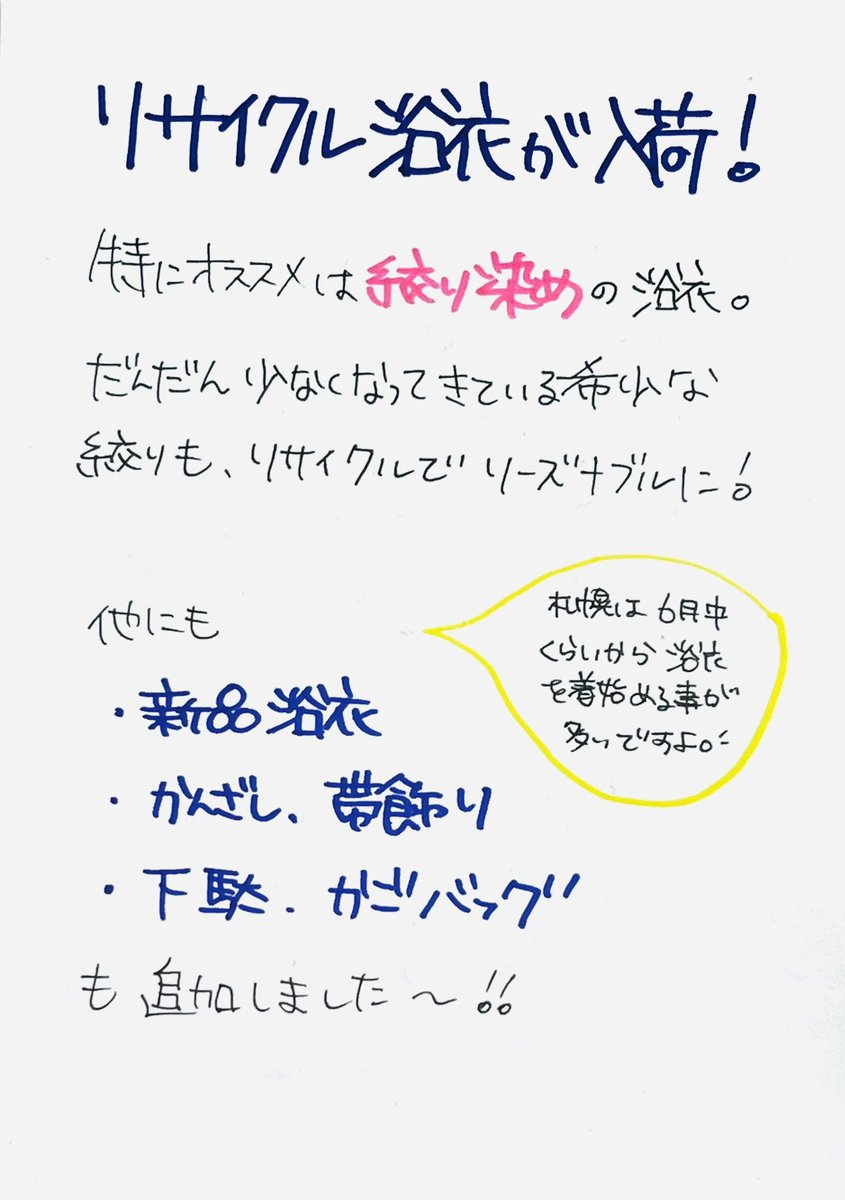 リサイクル浴衣が入荷!
特にオススメは絞り染めの浴衣。
だんだん少なくなってきている希少な
絞りも、リサイクルでリーズナブルに!
他にも
・新品浴衣
・かんざし、帯飾り
・下駄、かごバッグ
も追加しました〜!!
札幌は6月中
くらいから浴衣
を着始める事が
多いですよ。